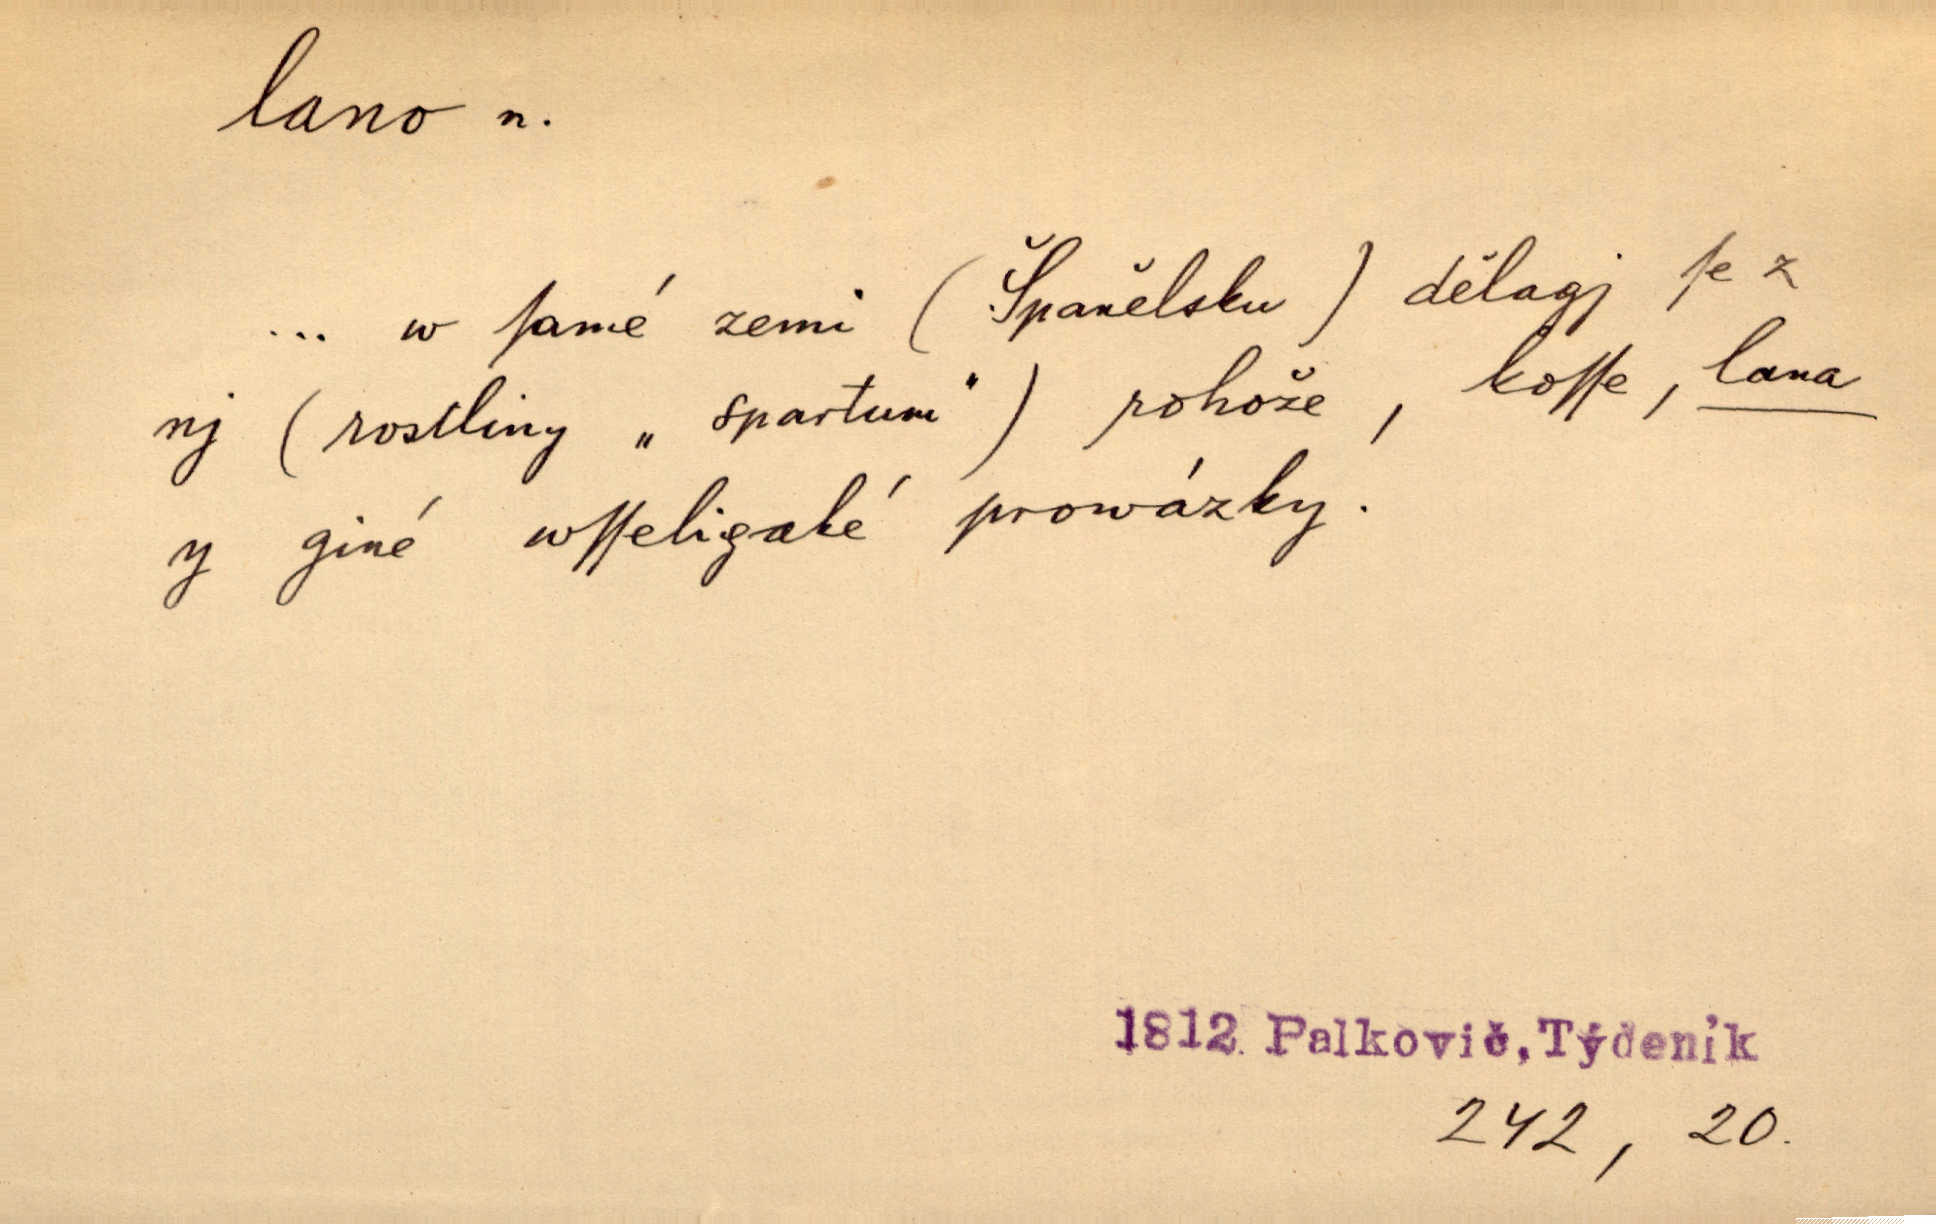 lano n.
... w ſamé zemi (Španělsku) dělagj ſe z
nj (rostliny „spartum") rohože, koſſe, lana
y giné wſſeligaké prowázky.
1812 Palkovič, Týdeník
242, 20.